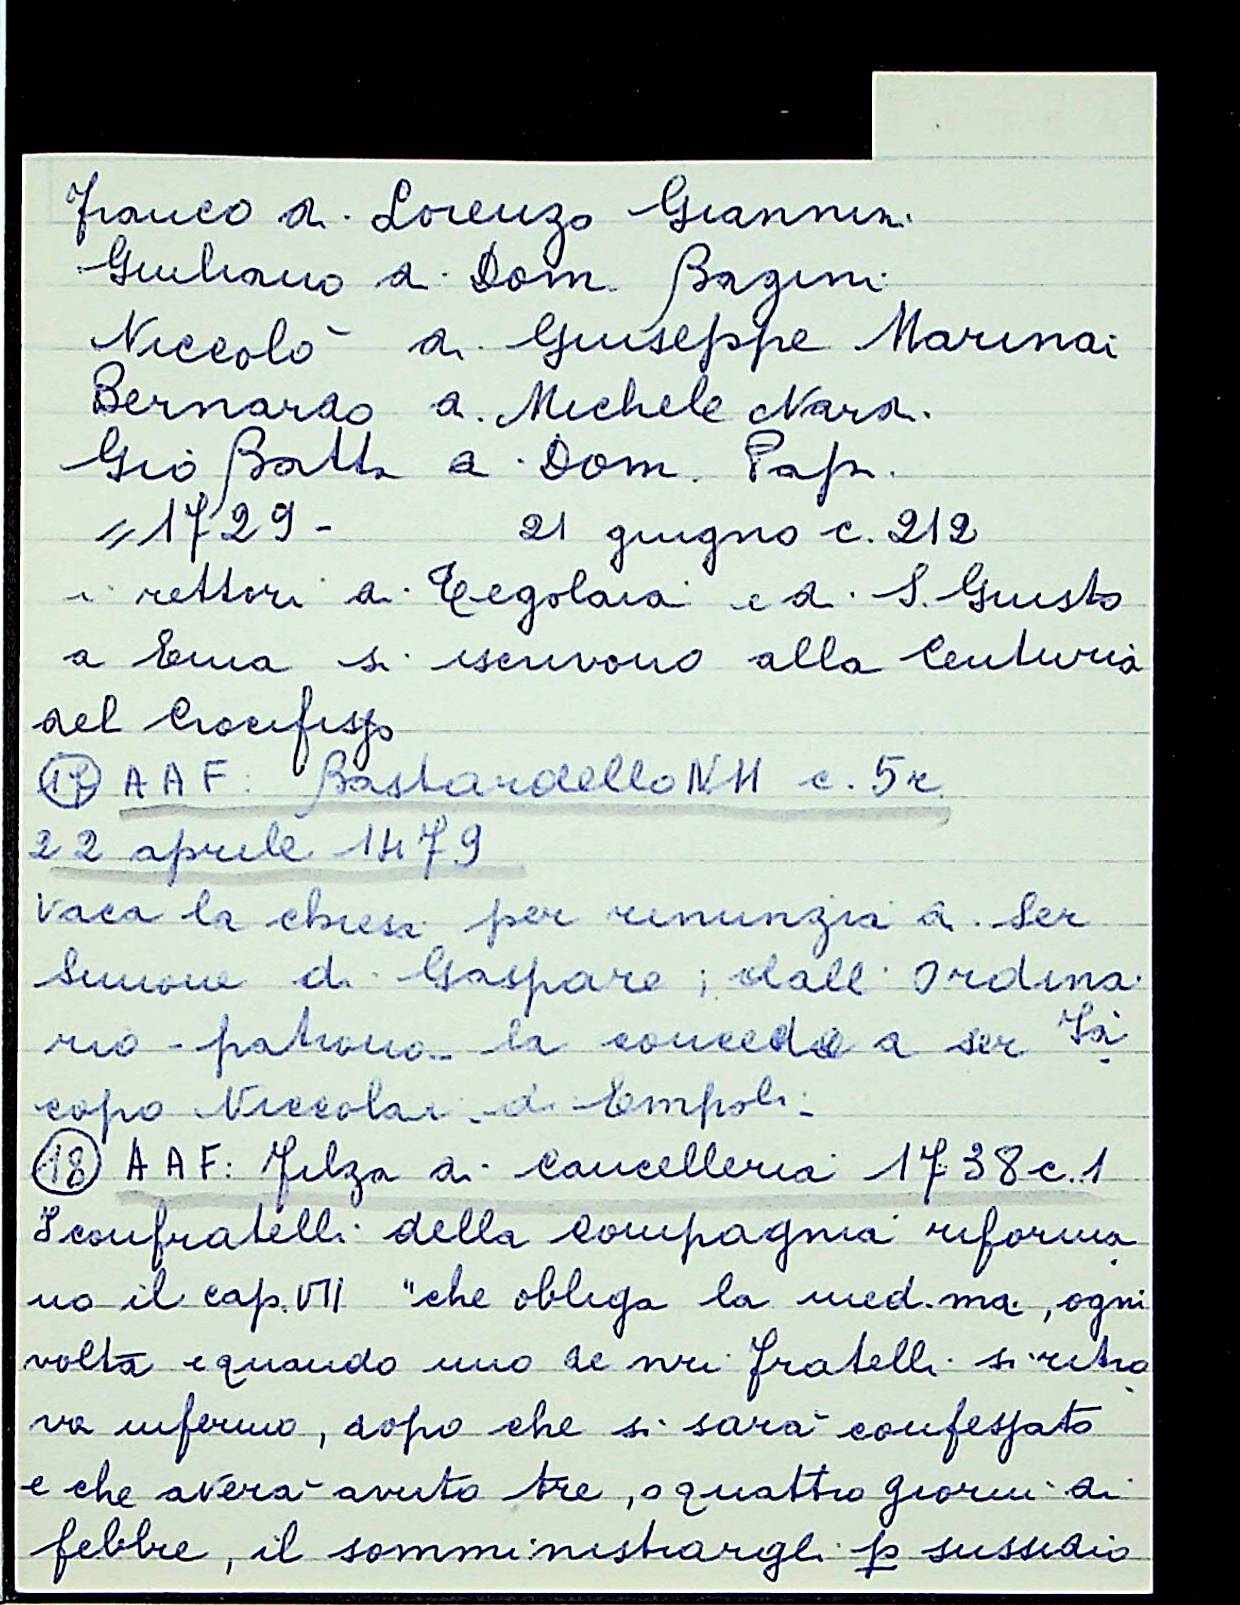 Franco di Lorenzo Giannini
Giuliano di Dom. Bagini
Niccolò di Giuseppe Marinai
Bernardo di Michele Nardi
Gio Batta di Dom. Papi
" 1729 - 21 giugno c. 212
i rettori di Tegolaia e di S. Giusto
a Ema si iscrivono alla Centuria
del Crocifisso
(17) AAF: Bastardello NH c. 5r
22 aprile 1479
Vaca la chiesa per rinunzia di Ser
Simone di Gaspare; dall'Ordina
rio - patrono - la concede a ser Ja
copo Niccolai di Empoli.
(18) AAF: Filza di Cancelleria 1738 c. 1
I confratelli della Compagnia riforma
no il cap. VII "che obliga la med.ma, ogni
volta e quando uno de nri fratelli si ritro
va infermo, dopo che si sarà confessato
e che averà avuto tre, o quattro giorni di
febbre, il somministrargli p sussidio